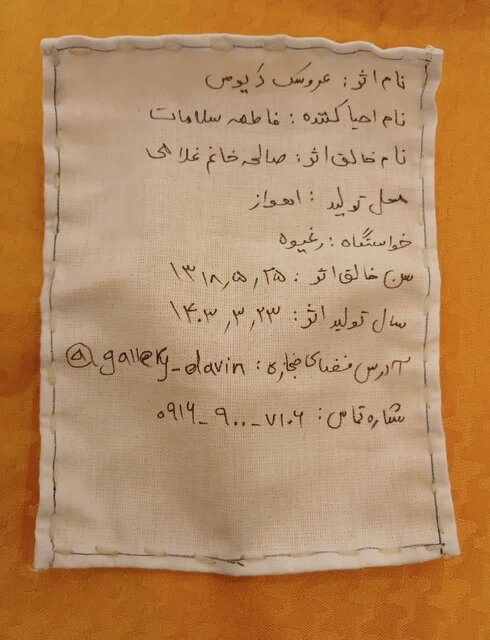 نام اثر: عروسک دیوس
نام احیا کننده: فاطمه سلامات
نام خالق اثر: صالحه خانم غلامی
محل تولید: اهواز
خواستگاه: رغیوه
سن خالق اثر: ۱۳۱۸٫۵٫۲۵
سال تولید اثر: ۱۴۰۳٫۳٫۲۳
آدرس فضای مجازی: @gallery_davin
شماره تماس: ۰۹۱۶_۹۰۰_۷۱۰۶